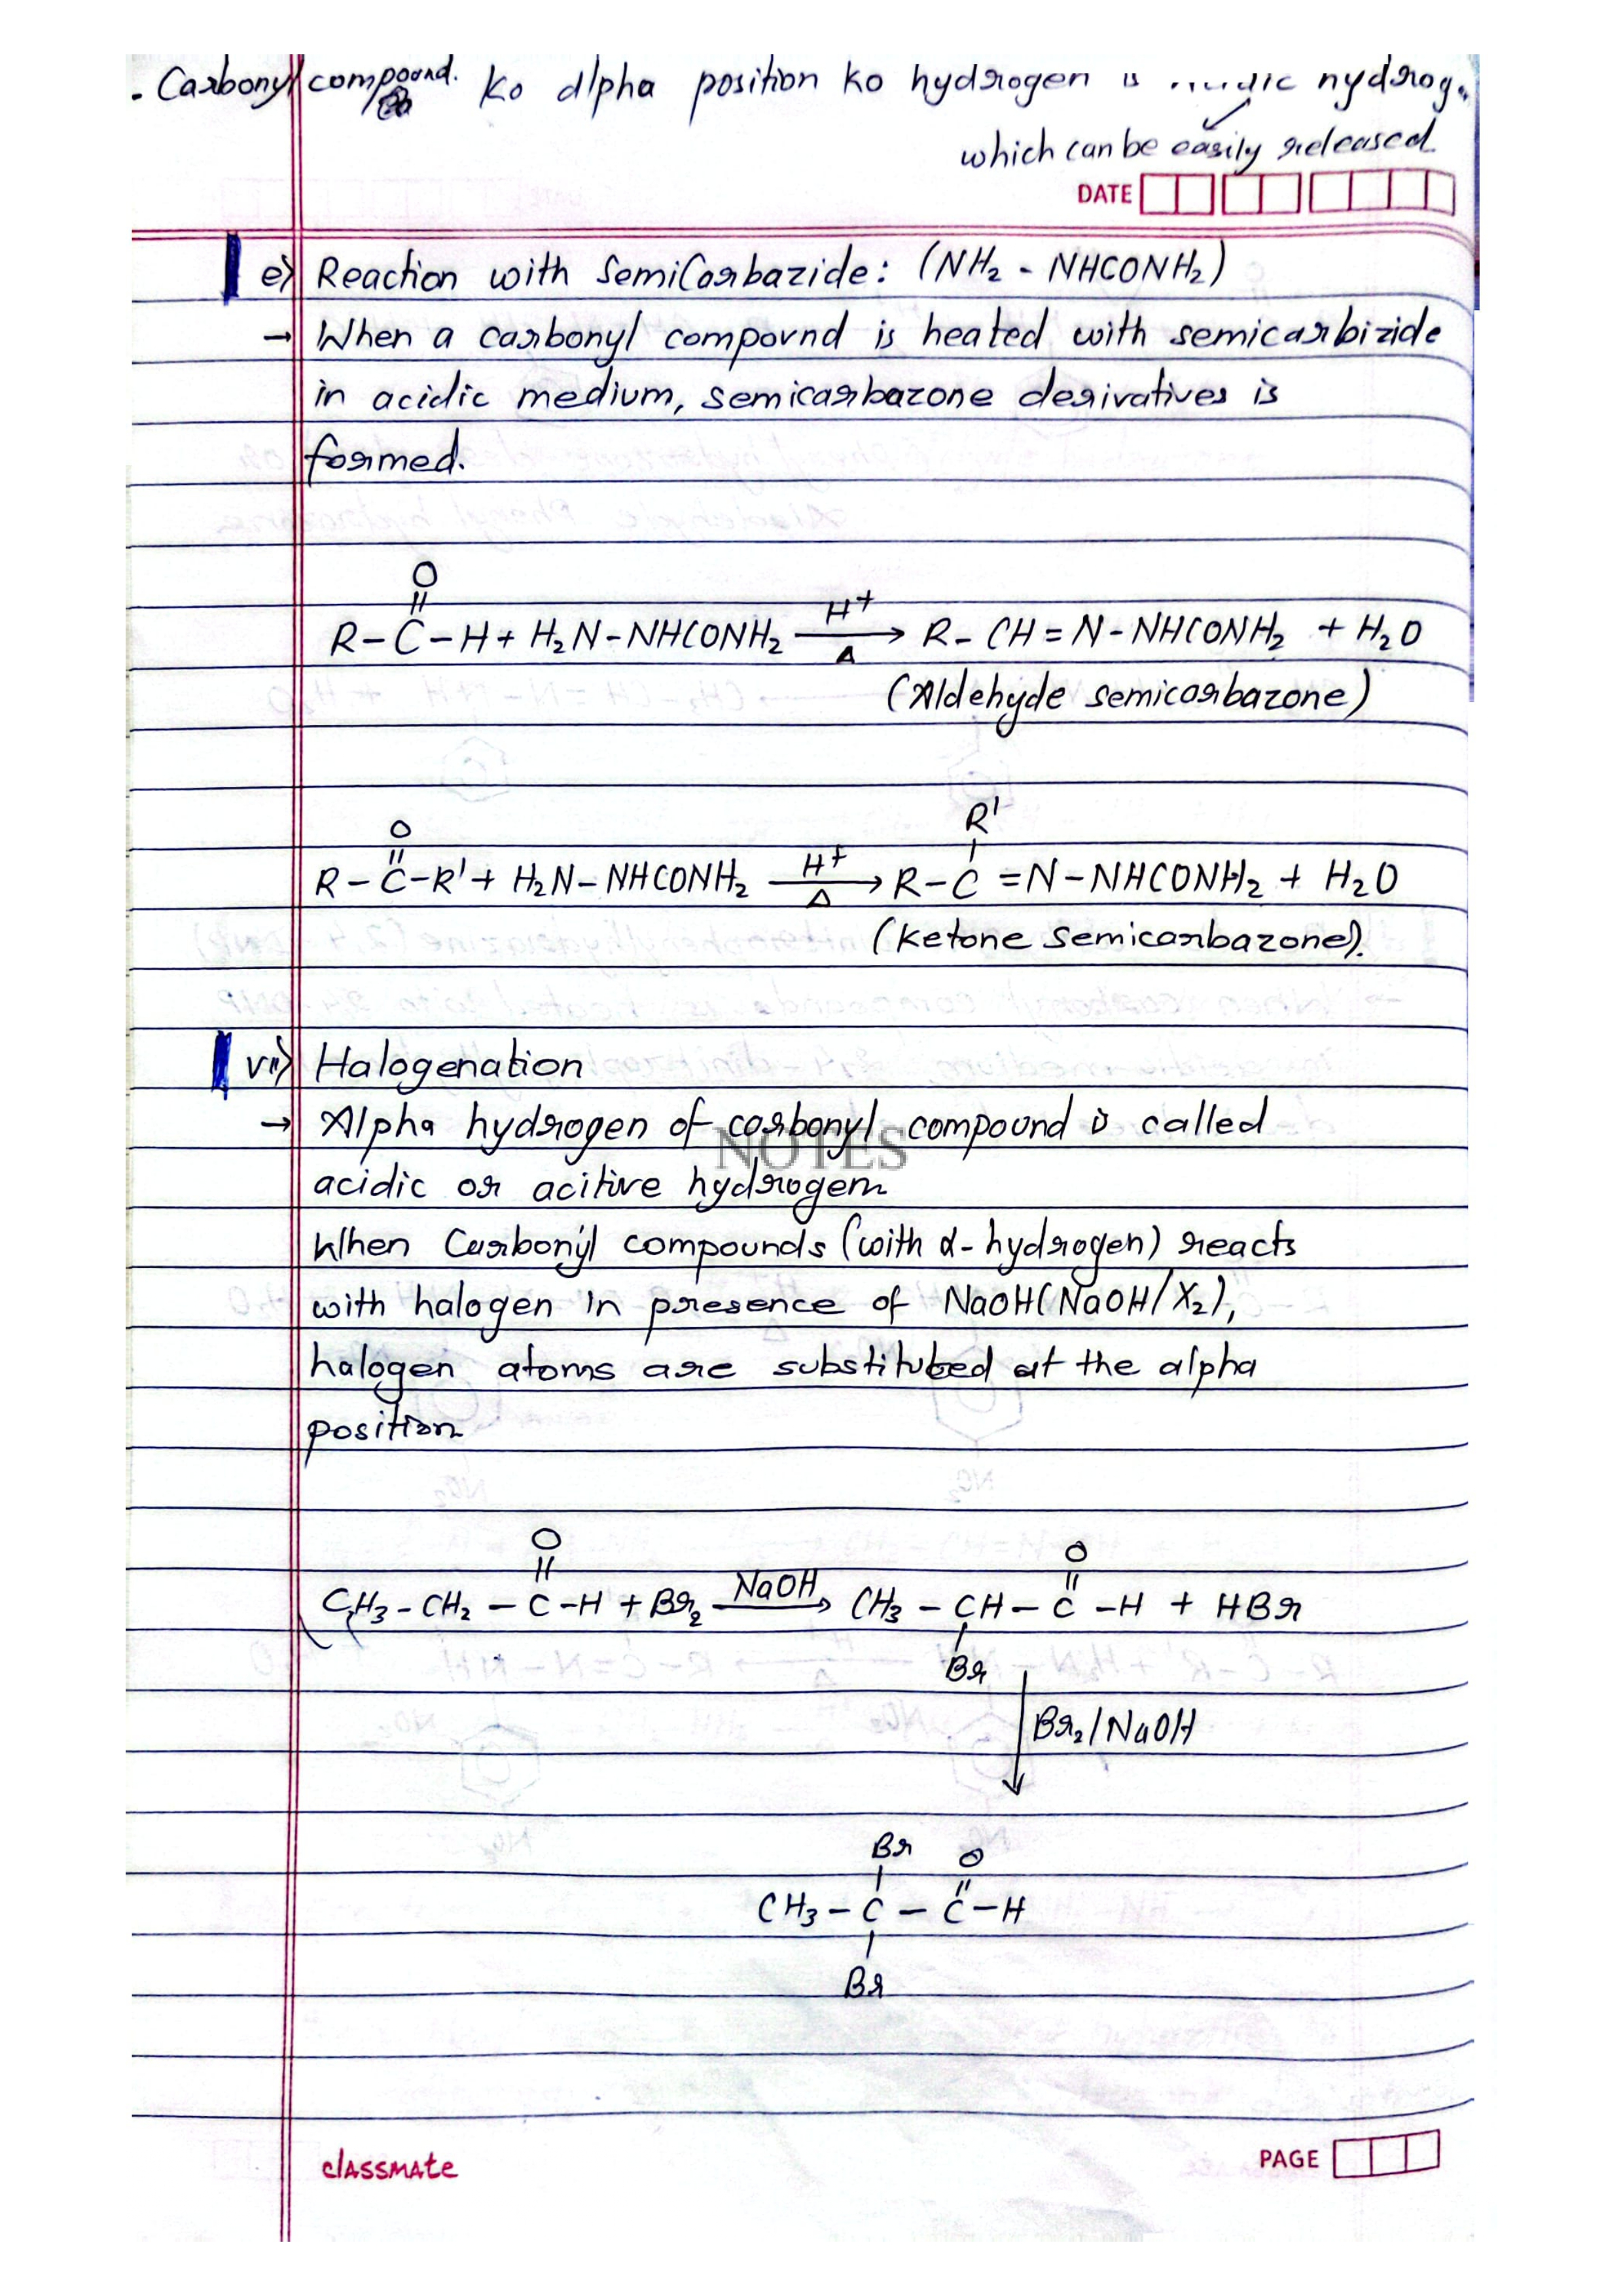 . Carbonyl compound. Ko alpha position ko hydrogen is
which can be easily released
DATE
e) Reaction with Semicarbazide: (NH₂ - NHCONH₂)
→ When a carbonyl compound is heated with semicarbizide
in acidic medium, semicarbazone derivatives is
formed.
O
||
R-C-H + H₂N-NHCONH₂ —H⁺/Δ→ R-CH=N-NHCONH₂ + H₂O
(Aldehyde semicarbazone)
O R'
|| |
R-C-R' + H₂N-NHCONH₂ —H⁺/Δ→ R-C=N-NHCONH₂ + H₂O
(Ketone semicarbazone).
vii) Halogenation
→ Alpha hydrogen of carbonyl compound is called
NOTES
acidic or acitive hydrogen
When Carbonyl compounds (with α-hydrogen) reacts
with halogen in presence of NaOH(NaOH/X₂),
halogen atoms are substituted at the alpha
position
O O
|| ||
CH₃-CH₂-C-H + Br₂ —NaOH→ CH₃-CH-C-H + HBr
|
Br
↓ Br₂/NaOH
Br O
| ||
CH₃-C-C-H
|
Br
classmate
PAGE